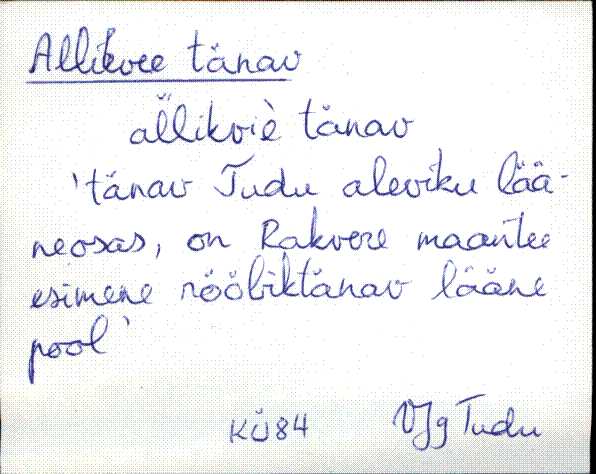 Allikvee tänav
allikviè tänav
'tänav Tudu aleviku lää-
neosas, on Rakvere maantee
esimene rööbiktänav lääne
pool'
KÜ84 VJg Tudu